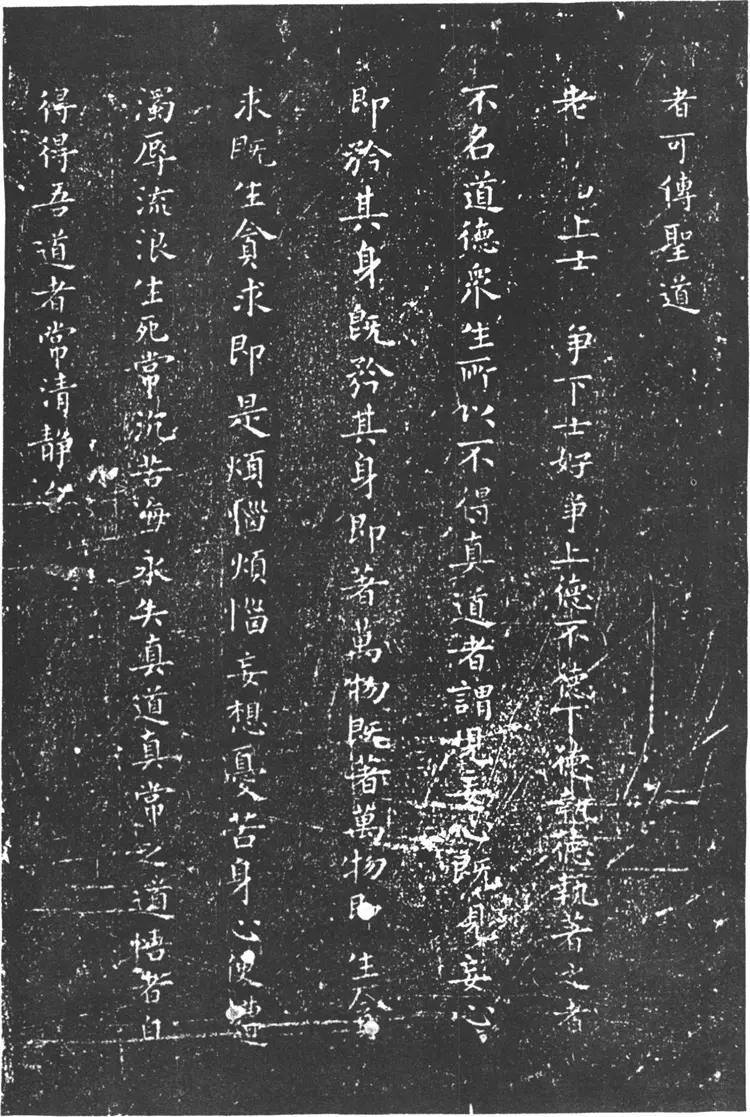 者可傳聖道
老 上士 爭下士好爭上德不德下德執德執著之者
不名道德衆生所以不得真道者謂見妄心既見妄心
即矜其身既矜其身即著萬物既著萬物即生貪
求既生貪求即是煩惱煩惱妄想憂苦身心便遭
濁辱流浪生死常沉苦海永失真道真常之道悟者自
得得吾道者常清靜矣